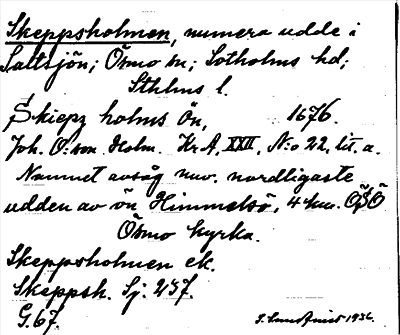 Skeppsholmen, numera udde i
Saltsjön; Ösmo sn; Sotholms hd;
Sthlms l.
Skiepz holms Ön, 1676.
Joh. O:son Holm. Kr A, XXII, N:o 22, lit. a.
Namnet avsåg nuv. nordligaste
udden av ön Himmelsö, 4 km. ÖSÖ
Ösmo kyrka.
Skeppsholmen ek.
Skeppsh. Sj. 237.
G. 67.
1936.